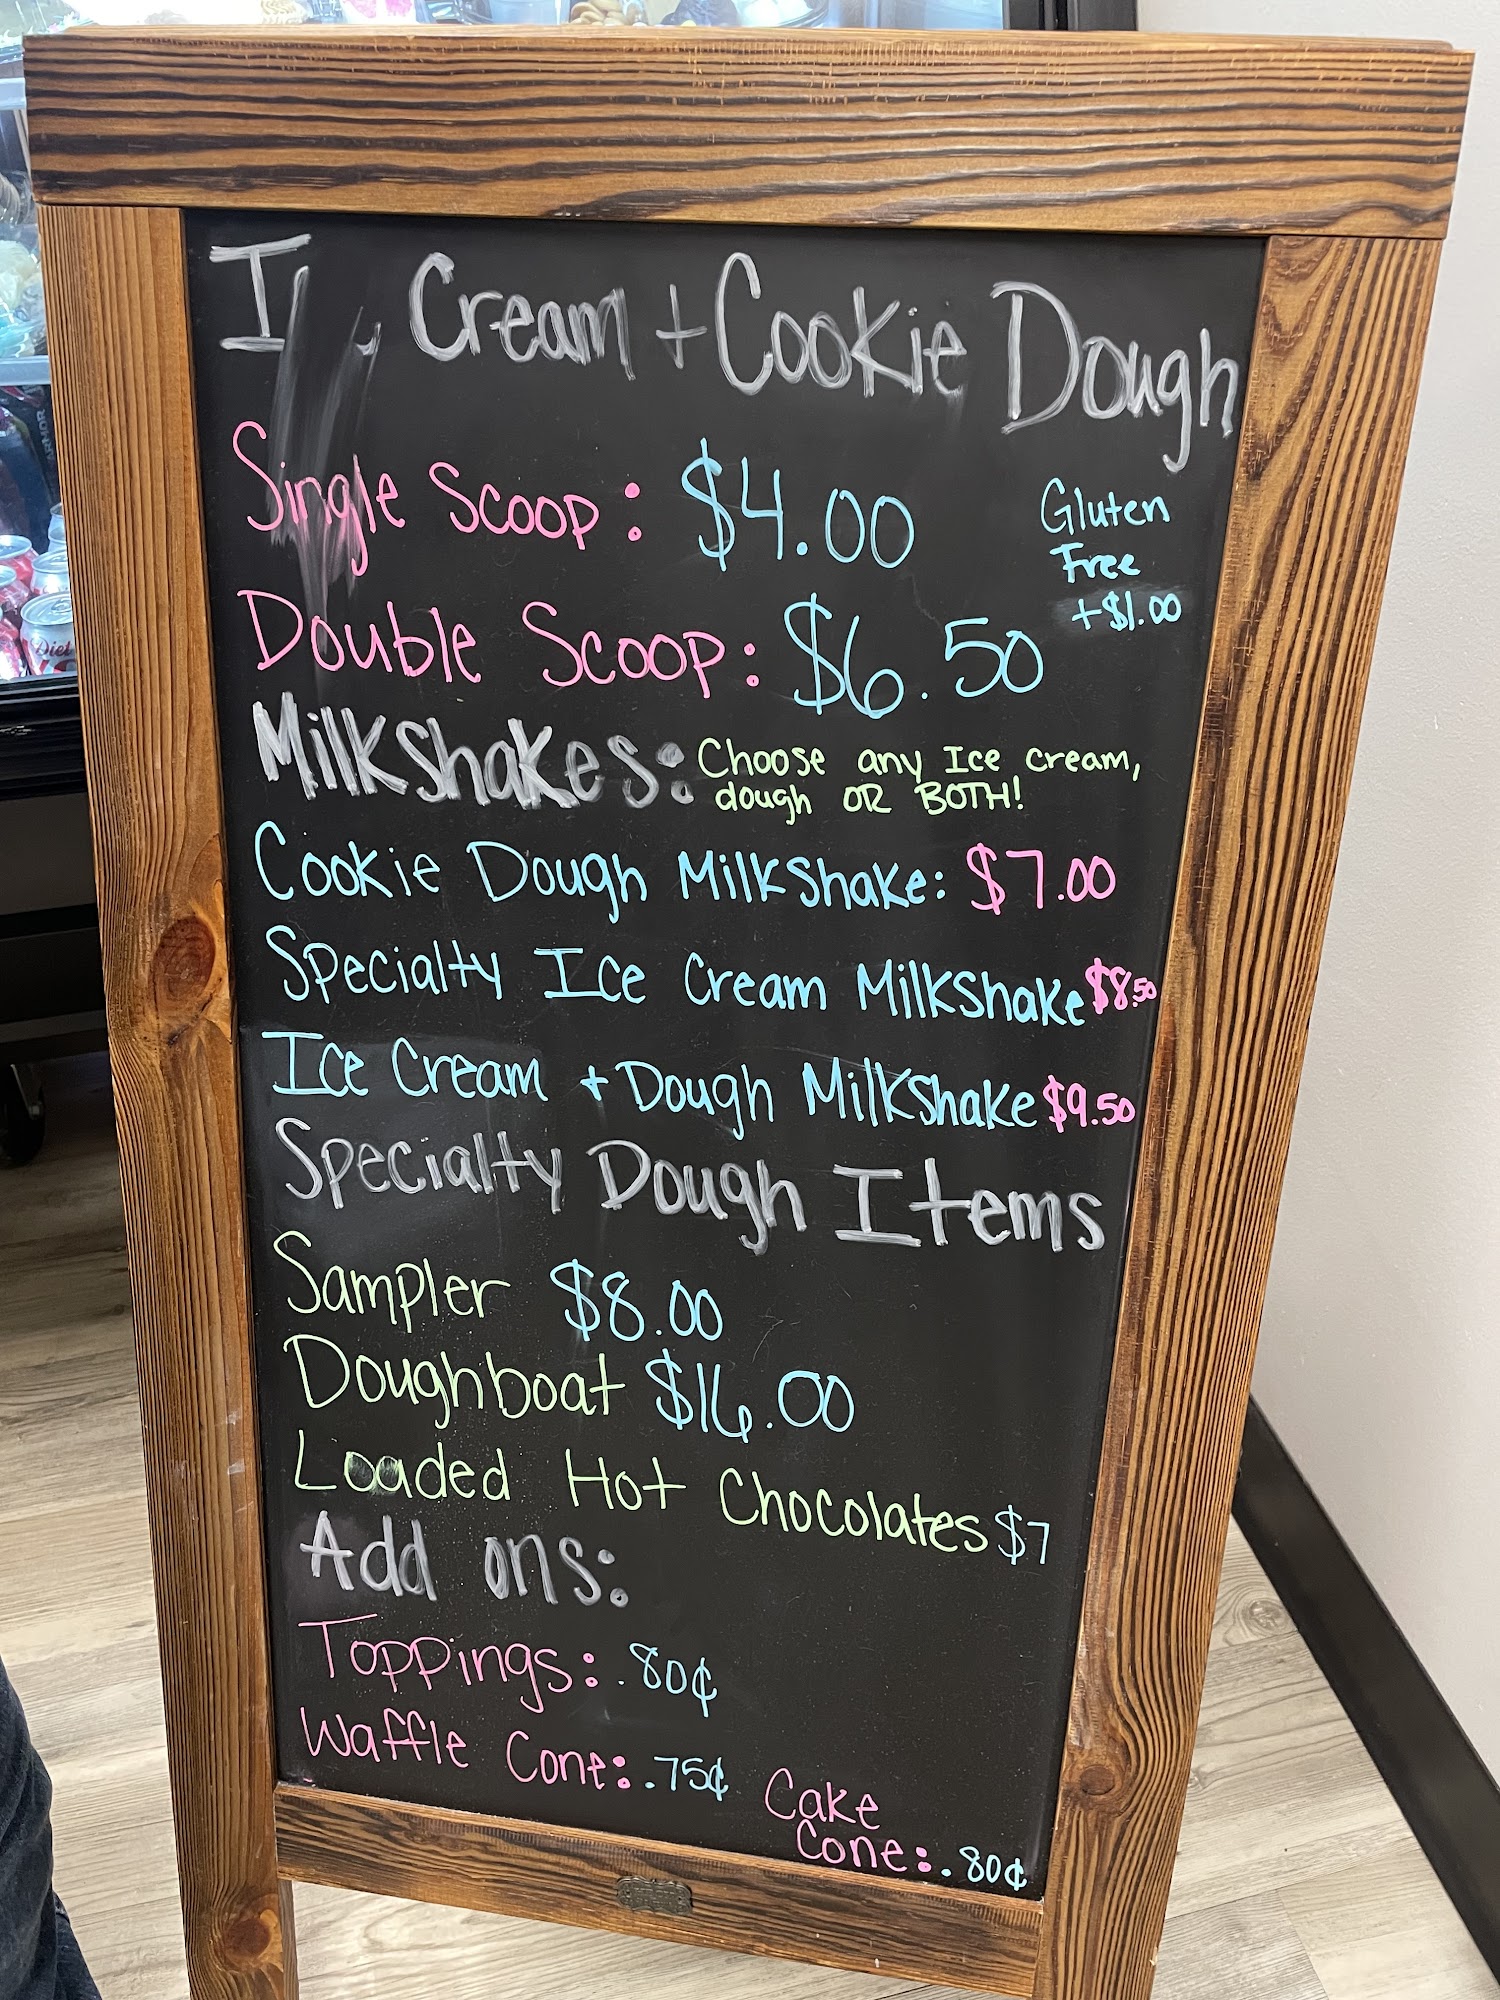 I Cream + Cookie Dough
Single Scoop: $4.00
Gluten
Free
+$1.00
Double Scoop: $6.50
Milkshakes: Choose any Ice cream,
dough OR BOTH!
Cookie Dough Milkshake: $7.00
Specialty Ice Cream Milkshake $8.50
Ice Cream + Dough Milkshake $9.50
Specialty Dough Items
Sampler $8.00
Doughboat $16.00
Loaded Hot Chocolates $7
Add ons:
Toppings: .80¢
Waffle Cone: .75¢
Cake
Cone: .80¢
Diet
ARMOR